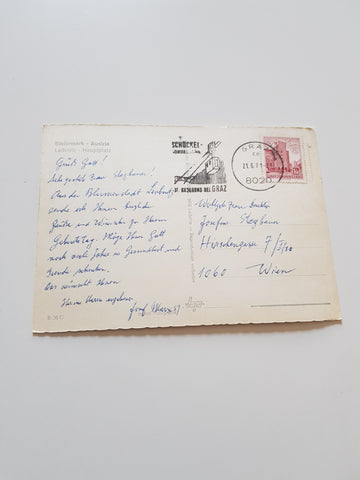 Steiermark - Austria
Leibnitz - Hauptplatz
Grüß Gott!
Sehr geehrte Frau Stephaner!
Aus der Blumenstadt Leibnitz
sende ich Ihnen herzliche
Grüße und Wünsche zu Ihrem
Geburtstag. Möge Ihnen Gott
noch viele Jahre in Gesundheit und
Freude schenken.
Das wünscht Ihnen
Ihnen Ihren ergebener
Josef
B 36 C
SCHÖCKEL-
ST. RADEGUND BEI GRAZ
GRAZ
21.6.71-
8020
Frau
Josefine Stephaner
Hirschengasse 7/
1060 Wien